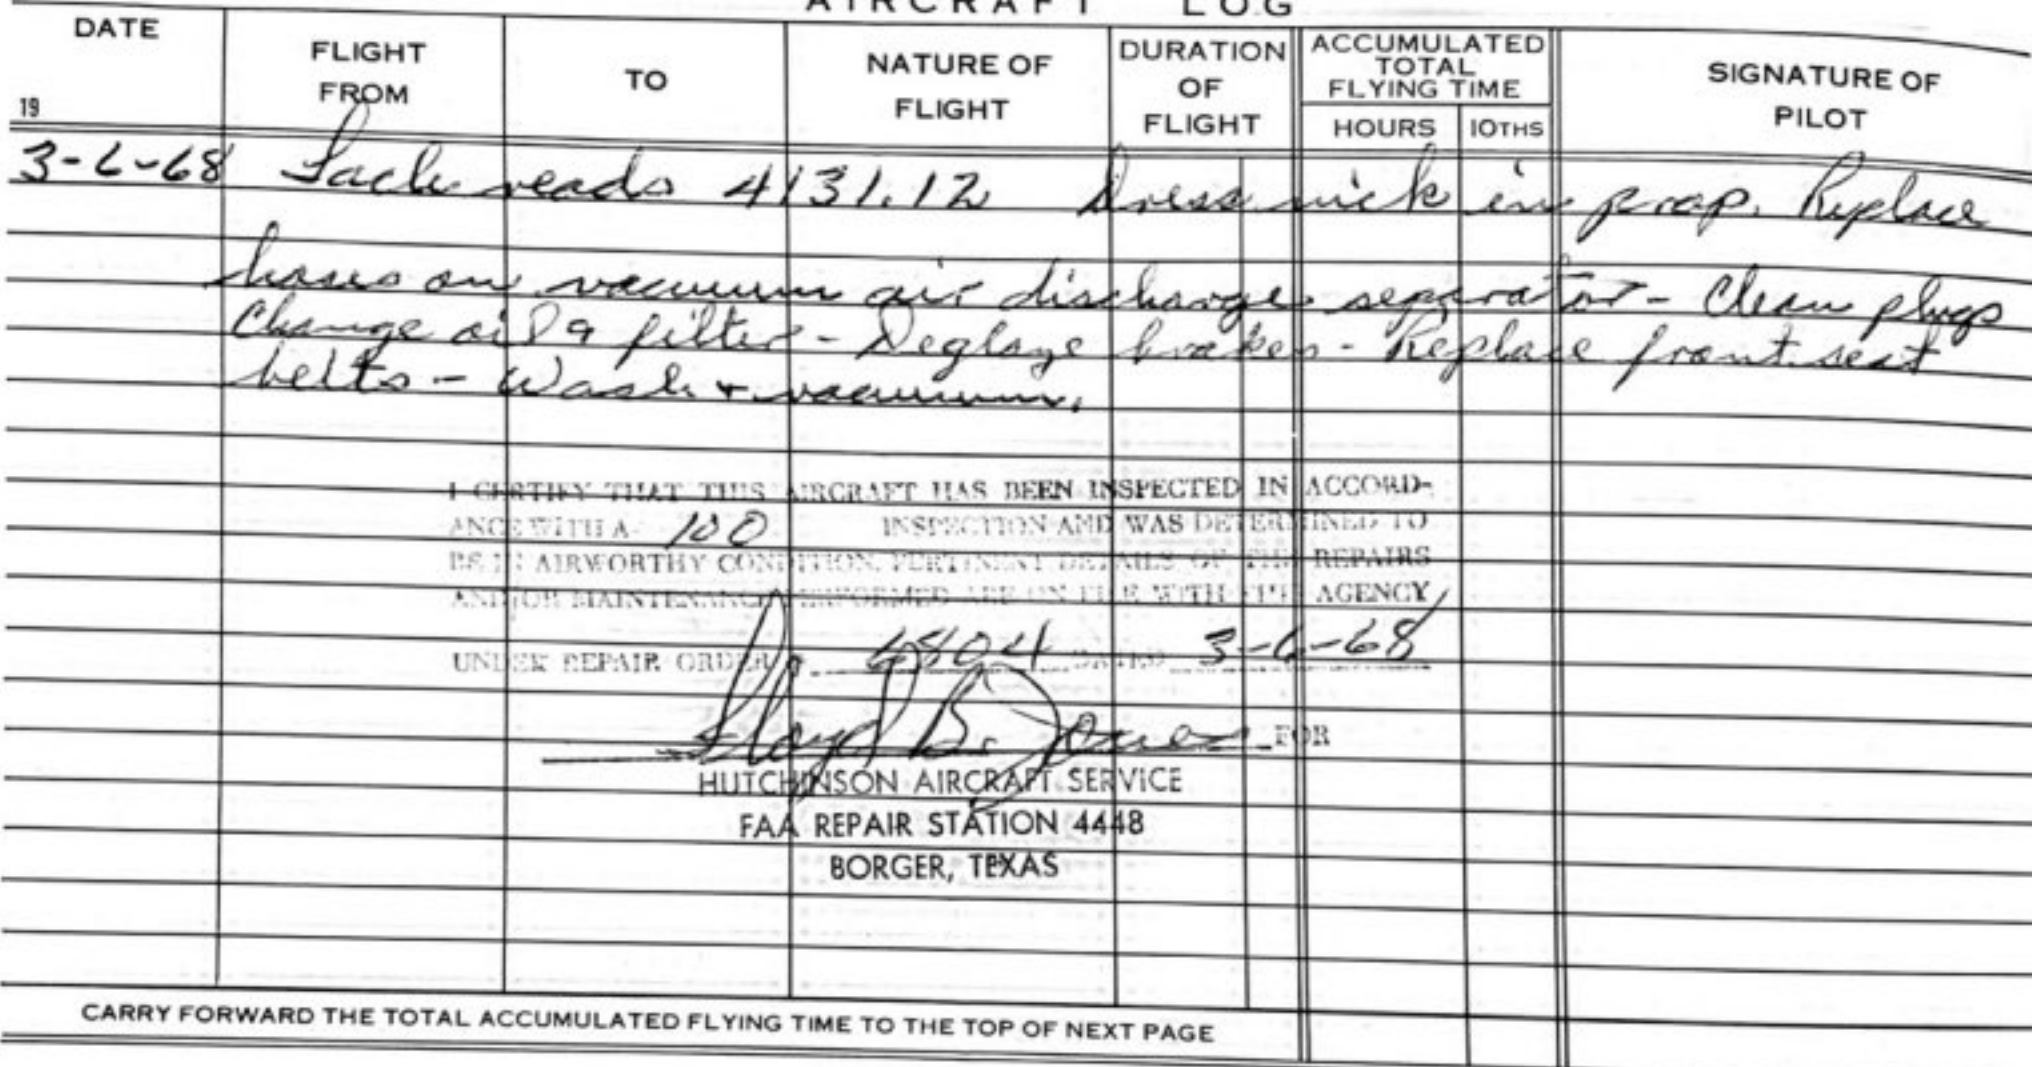 AIRCRAFT LOG
DATE
19
FLIGHT
FROM
TO
NATURE OF
FLIGHT
DURATION
OF
FLIGHT
ACCUMULATED
TOTAL
FLYING TIME
HOURS 10THS
SIGNATURE OF
PILOT
3-6-68 Tach reads 4131.12 Dress nick in prop. Replace
hoses on vacuum air discharge separator - Clean plugs
Change oil & filter - Deglaze brakes - Replace front seat
belts - Wash & vacuum.
I CERTIFY THAT THIS AIRCRAFT HAS BEEN INSPECTED IN ACCORD-
ANCE WITH A 100 INSPECTION AND WAS DETERMINED TO
BE IN AIRWORTHY CONDITION. PERTINENT DETAILS OF THE REPAIRS
AND/OR MAINTENANCE PERFORMED ARE ON FILE WITH THIS AGENCY
UNDER REPAIR ORDER 4804 DATED 3-6-68
Lloyd B. Jones FOR
HUTCHINSON AIRCRAFT SERVICE
FAA REPAIR STATION 4448
BORGER, TEXAS
CARRY FORWARD THE TOTAL ACCUMULATED FLYING TIME TO THE TOP OF NEXT PAGE